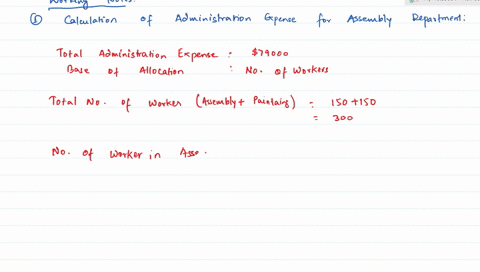 Working Notes:
① Calculation of Administration Expense for Assembly Department:
Total Administration Expense : $79000
Base of Allocation : No. of Workers
Total No. of Worker (Assembly + Paintaing) = 150+150
= 300
No. of Worker in Asse.